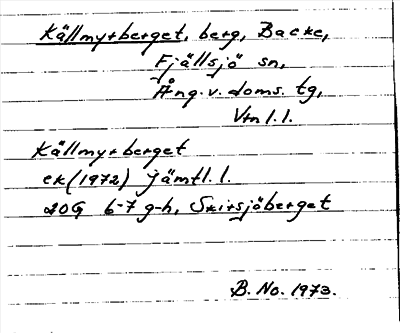 Källmyrberget, berg, Backe,
Fjällsjö sn,
Ång.v. doms. tg,
Vtn l. l.
Källmyrberget
ek (1972) Jämtl. l.
20G 6-7 g-h, Skirsjöberget
B. No. 1973.